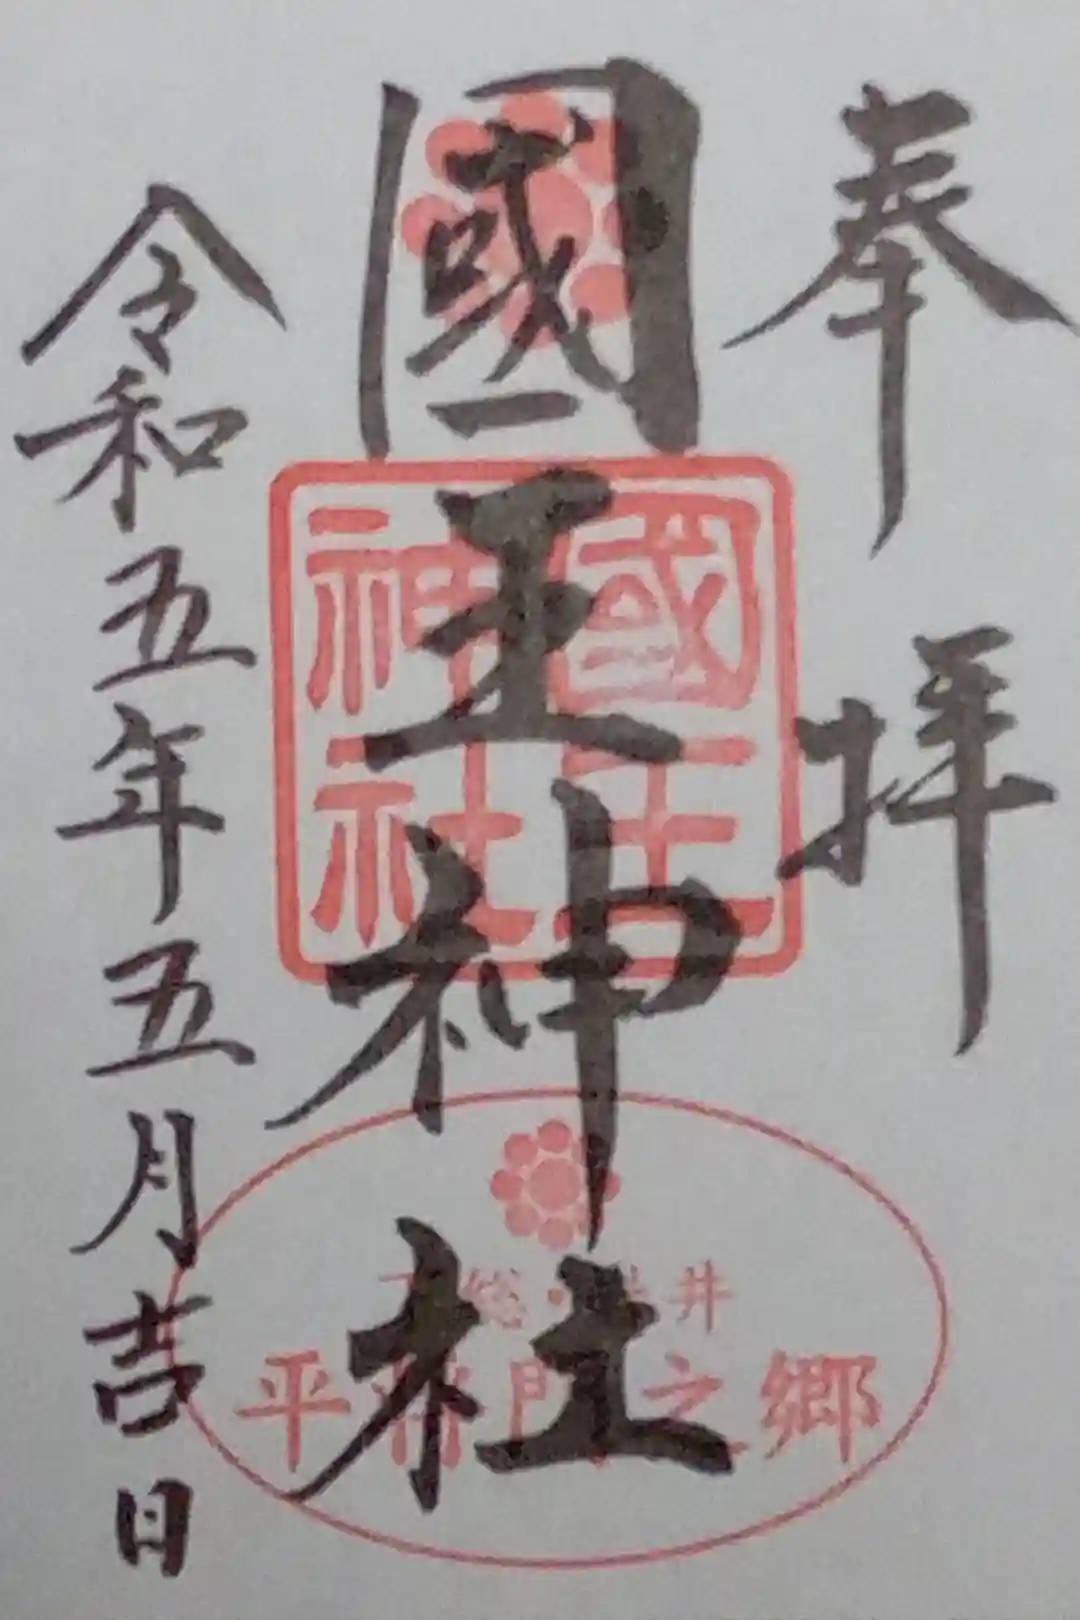 奉拝
國王神社
令和五年五月吉日
國王
神社
総・井
平将門之郷